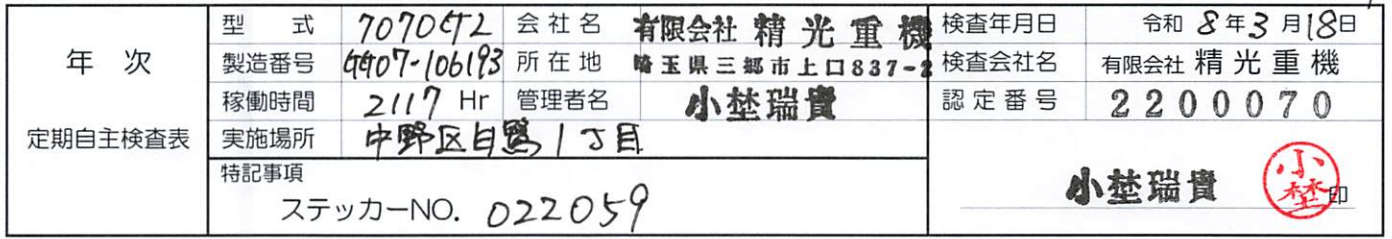 年次
定期自主検査表
型式 7070GT2 会社名 有限会社 精光重機 検査年月日 令和 8年3月18日
製造番号 GG07-106193 所在地 埼玉県三郷市上口837-2 検査会社名 有限会社 精光重機
稼働時間 2117 Hr 管理者名 小埜瑞貴 認定番号 2200070
実施場所 中野区白鷺1丁目
特記事項
ステッカーNO. 022059
小埜瑞貴 小埜 印